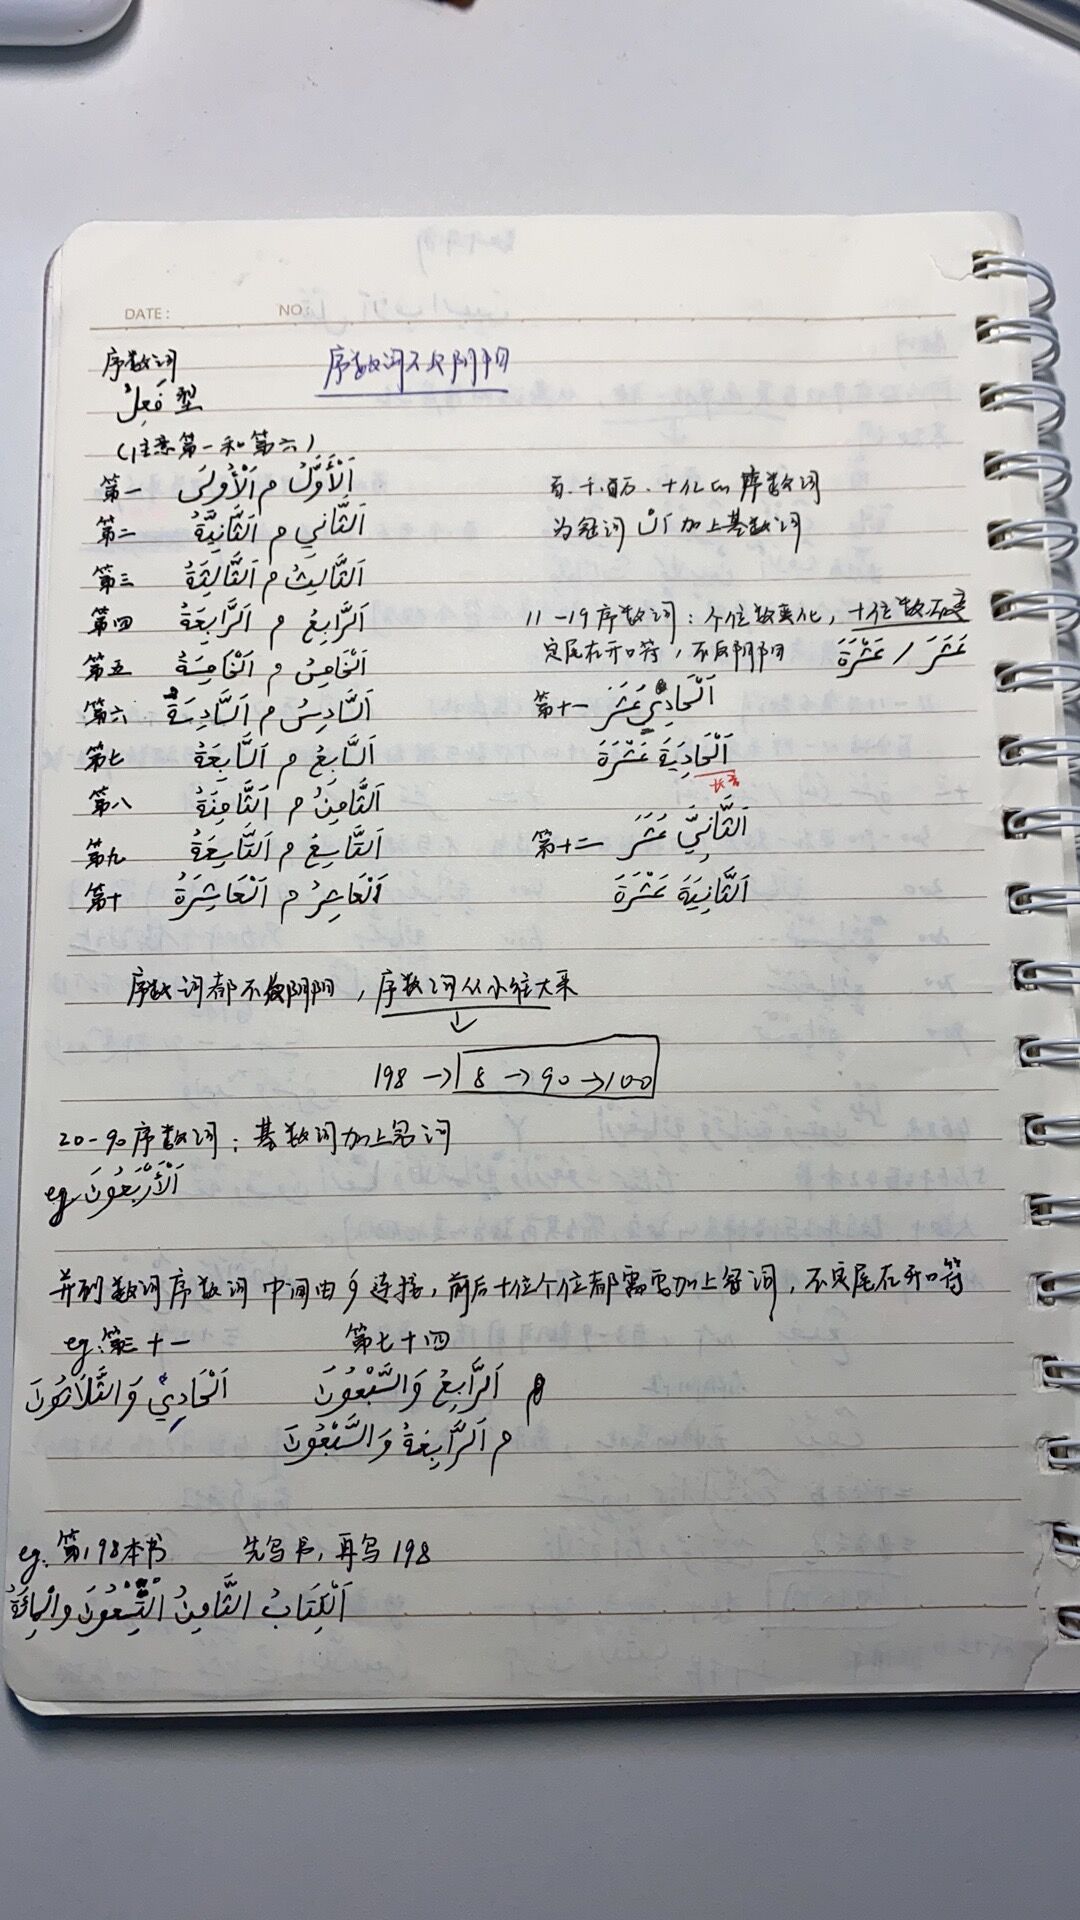 DATE: NO:
序数词 序数词不反阴阳
فَعِلٌ 型
(注意第一和第六)
第一 اَلْأَوَّلُ م اَلْأُولَى
第二 اَلثَّانِي م اَلثَّانِيَّةُ
第三 اَلثَّالِثُ م اَلثَّالِثَةُ
第四 اَلرَّابِعُ م اَلرَّابِعَةُ
第五 اَلْخَامِسُ م اَلْخَامِسَةُ
第六 اَلسَّادِسُ م اَلسَّادِسَةُ
第七 اَلسَّابِعُ م اَلسَّابِعَةُ
第八 اَلثَّامِنُ م اَلثَّامِنَةُ
第九 اَلتَّاسِعُ م اَلتَّاسِعَةُ
第十 اَلْعَاشِرُ م اَلْعَاشِرَةُ
百、千、百万、十亿的序数词
为冠词 اَلْ 加上基数词
11-19序数词:个位数变化,十位数不变
定尾在开口符,不反阴阳 عَشَرَ / عَشْرَةَ
第十一 اَلْحَادِيَ عَشَرَ
اَلْحَادِيَةَ عَشْرَةَ
长音
第十二 اَلثَّانِيَ عَشَرَ
اَلثَّانِيَةَ عَشْرَةَ
序数词都不反阴阳,序数词从小往大来
198 → 8 → 90 → 100
20-90序数词:基数词加上冠词
eg. اَلْأَرْبَعُونَ
并列数词序数词中间由 و 连接,前后十位个位都需要加上冠词,不定尾在开口符
eg:第三十一 第七十四
اَلْحَادِي وَالثَّلَاثُونَ اَلرَّابِعُ وَالسَّبْعُونَ
م اَلرَّابِعَةُ وَالسَّبْعُونَ
eg. 第198本书 先写书,再写198
اَلْكِتَابُ الثَّامِنُ التِّسْعُونَ وَالْمِائَةُ